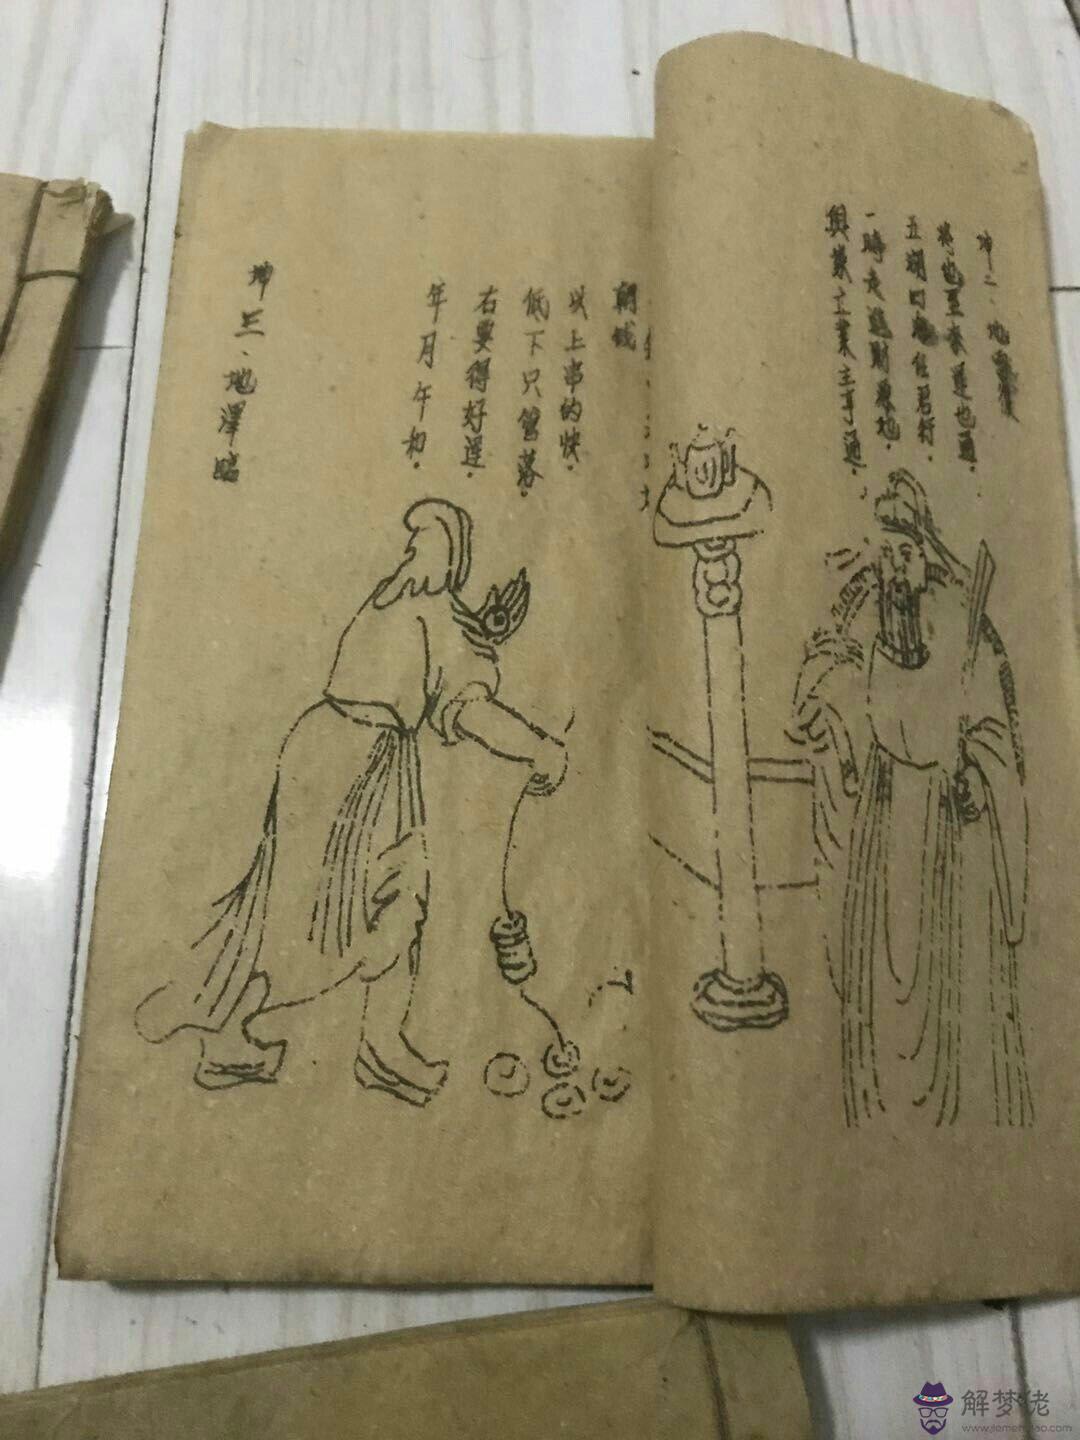 坤二、地
將也至來運也通。
五湖四海任君行。
一時走進財源地。
興家立業主亨通。
朝钱
以上串的快。
低下只管落。
右要得好運。
年月午初。
坤三、地澤臨
解梦佬